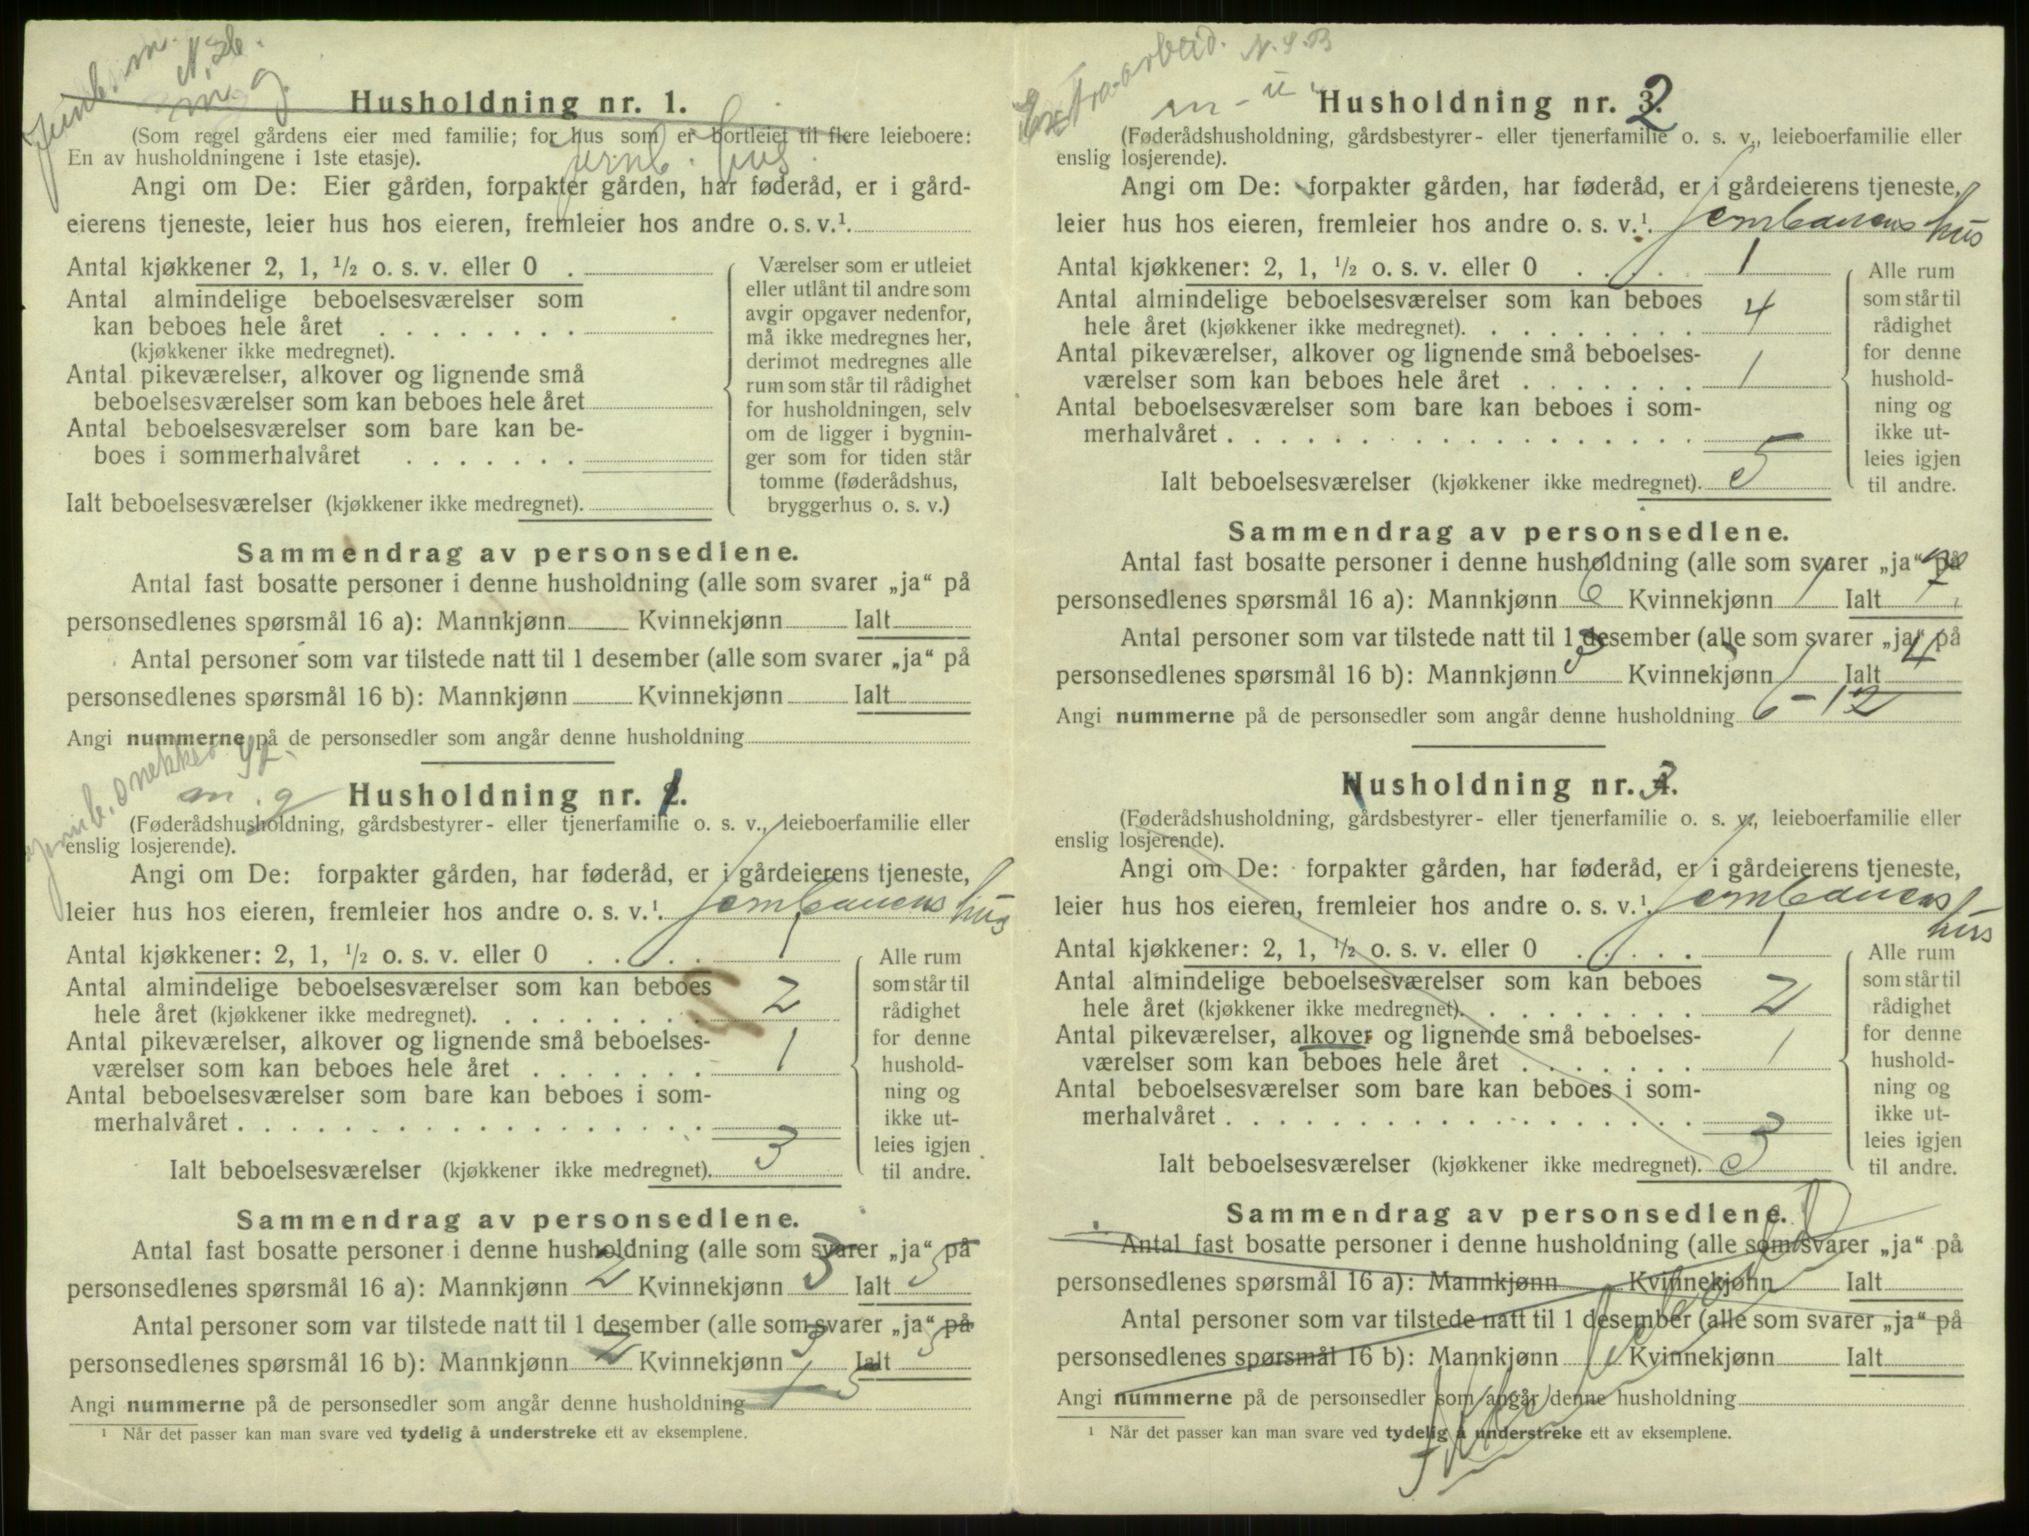 Jernb. m.
N. Sb.
m. g.
Husholdning nr. 1.
(Som regel gårdens eier med familie; for hus som er bortleiet til flere leieboere:
En av husholdningene i 1ste etasje).
Jernb. hus.
Angi om De: Eier gården, forpakter gården, har føderåd, er i gård-
eierens tjeneste, leier hus hos eieren, fremleier hos andre o. s. v.¹.
Antal kjøkkener 2, 1, ½ o. s. v. eller 0 .
Antal almindelige beboelsesværelser som
kan beboes hele året . . . . . . . .
(kjøkkener ikke medregnet).
Antal pikeværelser, alkover og lignende små
beboelsesværelser som kan beboes hele året
Antal beboelsesværelser som bare kan be-
boes i sommerhalvåret . . . . . . .
Ialt beboelsesværelser (kjøkkener ikke medregnet).
Værelser som er utleiet
eller utlånt til andre som
avgir opgaver nedenfor,
må ikke medregnes her,
derimot medregnes alle
rum som står til rådighet
for husholdningen, selv
om de ligger i bygnin-
ger som for tiden står
tomme (føderådshus,
bryggerhus o. s. v.)
Sammendrag av personsedlene.
Antal fast bosatte personer i denne husholdning (alle som svarer „ja“ på
personsedlenes spørsmål 16 a): Mannkjønn Kvinnekjønn Ialt
Antal personer som var tilstede natt til 1 desember (alle som svarer „ja“ på
personsedlenes spørsmål 16 b): Mannkjønn Kvinnekjønn Ialt
Angi nummerne på de personsedler som angår denne husholdning
Jernb. snekker
m. g Husholdning nr. 1.
(Føderådshusholdning, gårdsbestyrer- eller tjenerfamilie o. s. v., leieboerfamilie eller
enslig losjerende).
Angi om De: forpakter gården, har føderåd, er i gårdeierens tjeneste,
leier hus hos eieren, fremleier hos andre o. s. v.¹. Jernbanens hus
Antal kjøkkener: 2, 1, ½ o. s. v. eller 0 . . . . . 1
Antal almindelige beboelsesværelser som kan beboes
hele året (kjøkkener ikke medregnet). . . . . . . . . 2
Antal pikeværelser, alkover og lignende små beboelses-
værelser som kan beboes hele året . . . . . . . 1
Antal beboelsesværelser som bare kan beboes i som-
merhalvåret . . . . . . . . . . . . . . . . . .
Ialt beboelsesværelser (kjøkkener ikke medregnet). 3
Alle rum
som står til
rådighet
for denne
hushold-
ning og
ikke ut-
leies igjen
til andre.
Sammendrag av personsedlene.
Antal fast bosatte personer i denne husholdning (alle som svarer „ja“ på
personsedlenes spørsmål 16 a): Mannkjønn 2 Kvinnekjønn 3 Ialt 5
Antal personer som var tilstede natt til 1 desember (alle som svarer „ja“ på
personsedlenes spørsmål 16 b): Mannkjønn 2 Kvinnekjønn 3 Ialt 5
Angi nummerne på de personsedler som angår denne husholdning 1-5
¹ Når det passer kan man svare ved tydelig å understreke ett av eksemplene.
Extraarbeid. N. S. B
m - u.
Husholdning nr. 2
(Føderådshusholdning, gårdsbestyrer- eller tjenerfamilie o. s. v., leieboerfamilie eller
enslig losjerende).
Angi om De: forpakter gården, har føderåd, er i gårdeierens tjeneste,
leier hus hos eieren, fremleier hos andre o. s. v.¹. Jernbanens hus
Antal kjøkkener: 2, 1, ½ o. s. v. eller 0 . . . . . 1
Antal almindelige beboelsesværelser som kan beboes
hele året (kjøkkener ikke medregnet). . . . . . . . . 4
Antal pikeværelser, alkover og lignende små beboelses-
værelser som kan beboes hele året . . . . . . . 1
Antal beboelsesværelser som bare kan beboes i som-
merhalvåret . . . . . . . . . . . . . . . . . .
Ialt beboelsesværelser (kjøkkener ikke medregnet). 5
Alle rum
som står til
rådighet
for denne
hushold-
ning og
ikke ut-
leies igjen
til andre.
Sammendrag av personsedlene.
Antal fast bosatte personer i denne husholdning (alle som svarer „ja“ på
personsedlenes spørsmål 16 a): Mannkjønn 6 Kvinnekjønn 1 Ialt 7
Antal personer som var tilstede natt til 1 desember (alle som svarer „ja“ på
personsedlenes spørsmål 16 b): Mannkjønn 3 Kvinnekjønn 1 Ialt 4
Angi nummerne på de personsedler som angår denne husholdning 6-12
Husholdning nr. 3.
(Føderådshusholdning, gårdsbestyrer- eller tjenerfamilie o. s. v., leieboerfamilie eller
enslig losjerende).
Angi om De: forpakter gården, har føderåd, er i gårdeierens tjeneste,
leier hus hos eieren, fremleier hos andre o. s. v.¹. Jernbanens hus
Antal kjøkkener: 2, 1, ½ o. s. v. eller 0 . . . . . 1
Antal almindelige beboelsesværelser som kan beboes
hele året (kjøkkener ikke medregnet). . . . . . . . . 2
Antal pikeværelser, alkover og lignende små beboelses-
værelser som kan beboes hele året . . . . . . . 1
Antal beboelsesværelser som bare kan beboes i som-
merhalvåret . . . . . . . . . . . . . . . . . .
Ialt beboelsesværelser (kjøkkener ikke medregnet). 3
Alle rum
som står til
rådighet
for denne
hushold-
ning og
ikke ut-
leies igjen
til andre.
Sammendrag av personsedlene.
Antal fast bosatte personer i denne husholdning (alle som svarer „ja“ på
personsedlenes spørsmål 16 a): Mannkjønn Kvinnekjønn Ialt
Antal personer som var tilstede natt til 1 desember (alle som svarer „ja“ på
personsedlenes spørsmål 16 b): Mannkjønn Kvinnekjønn Ialt
Angi nummerne på de personsedler som angår denne husholdning
¹ Når det passer kan man svare ved tydelig å understreke ett av eksemplene.